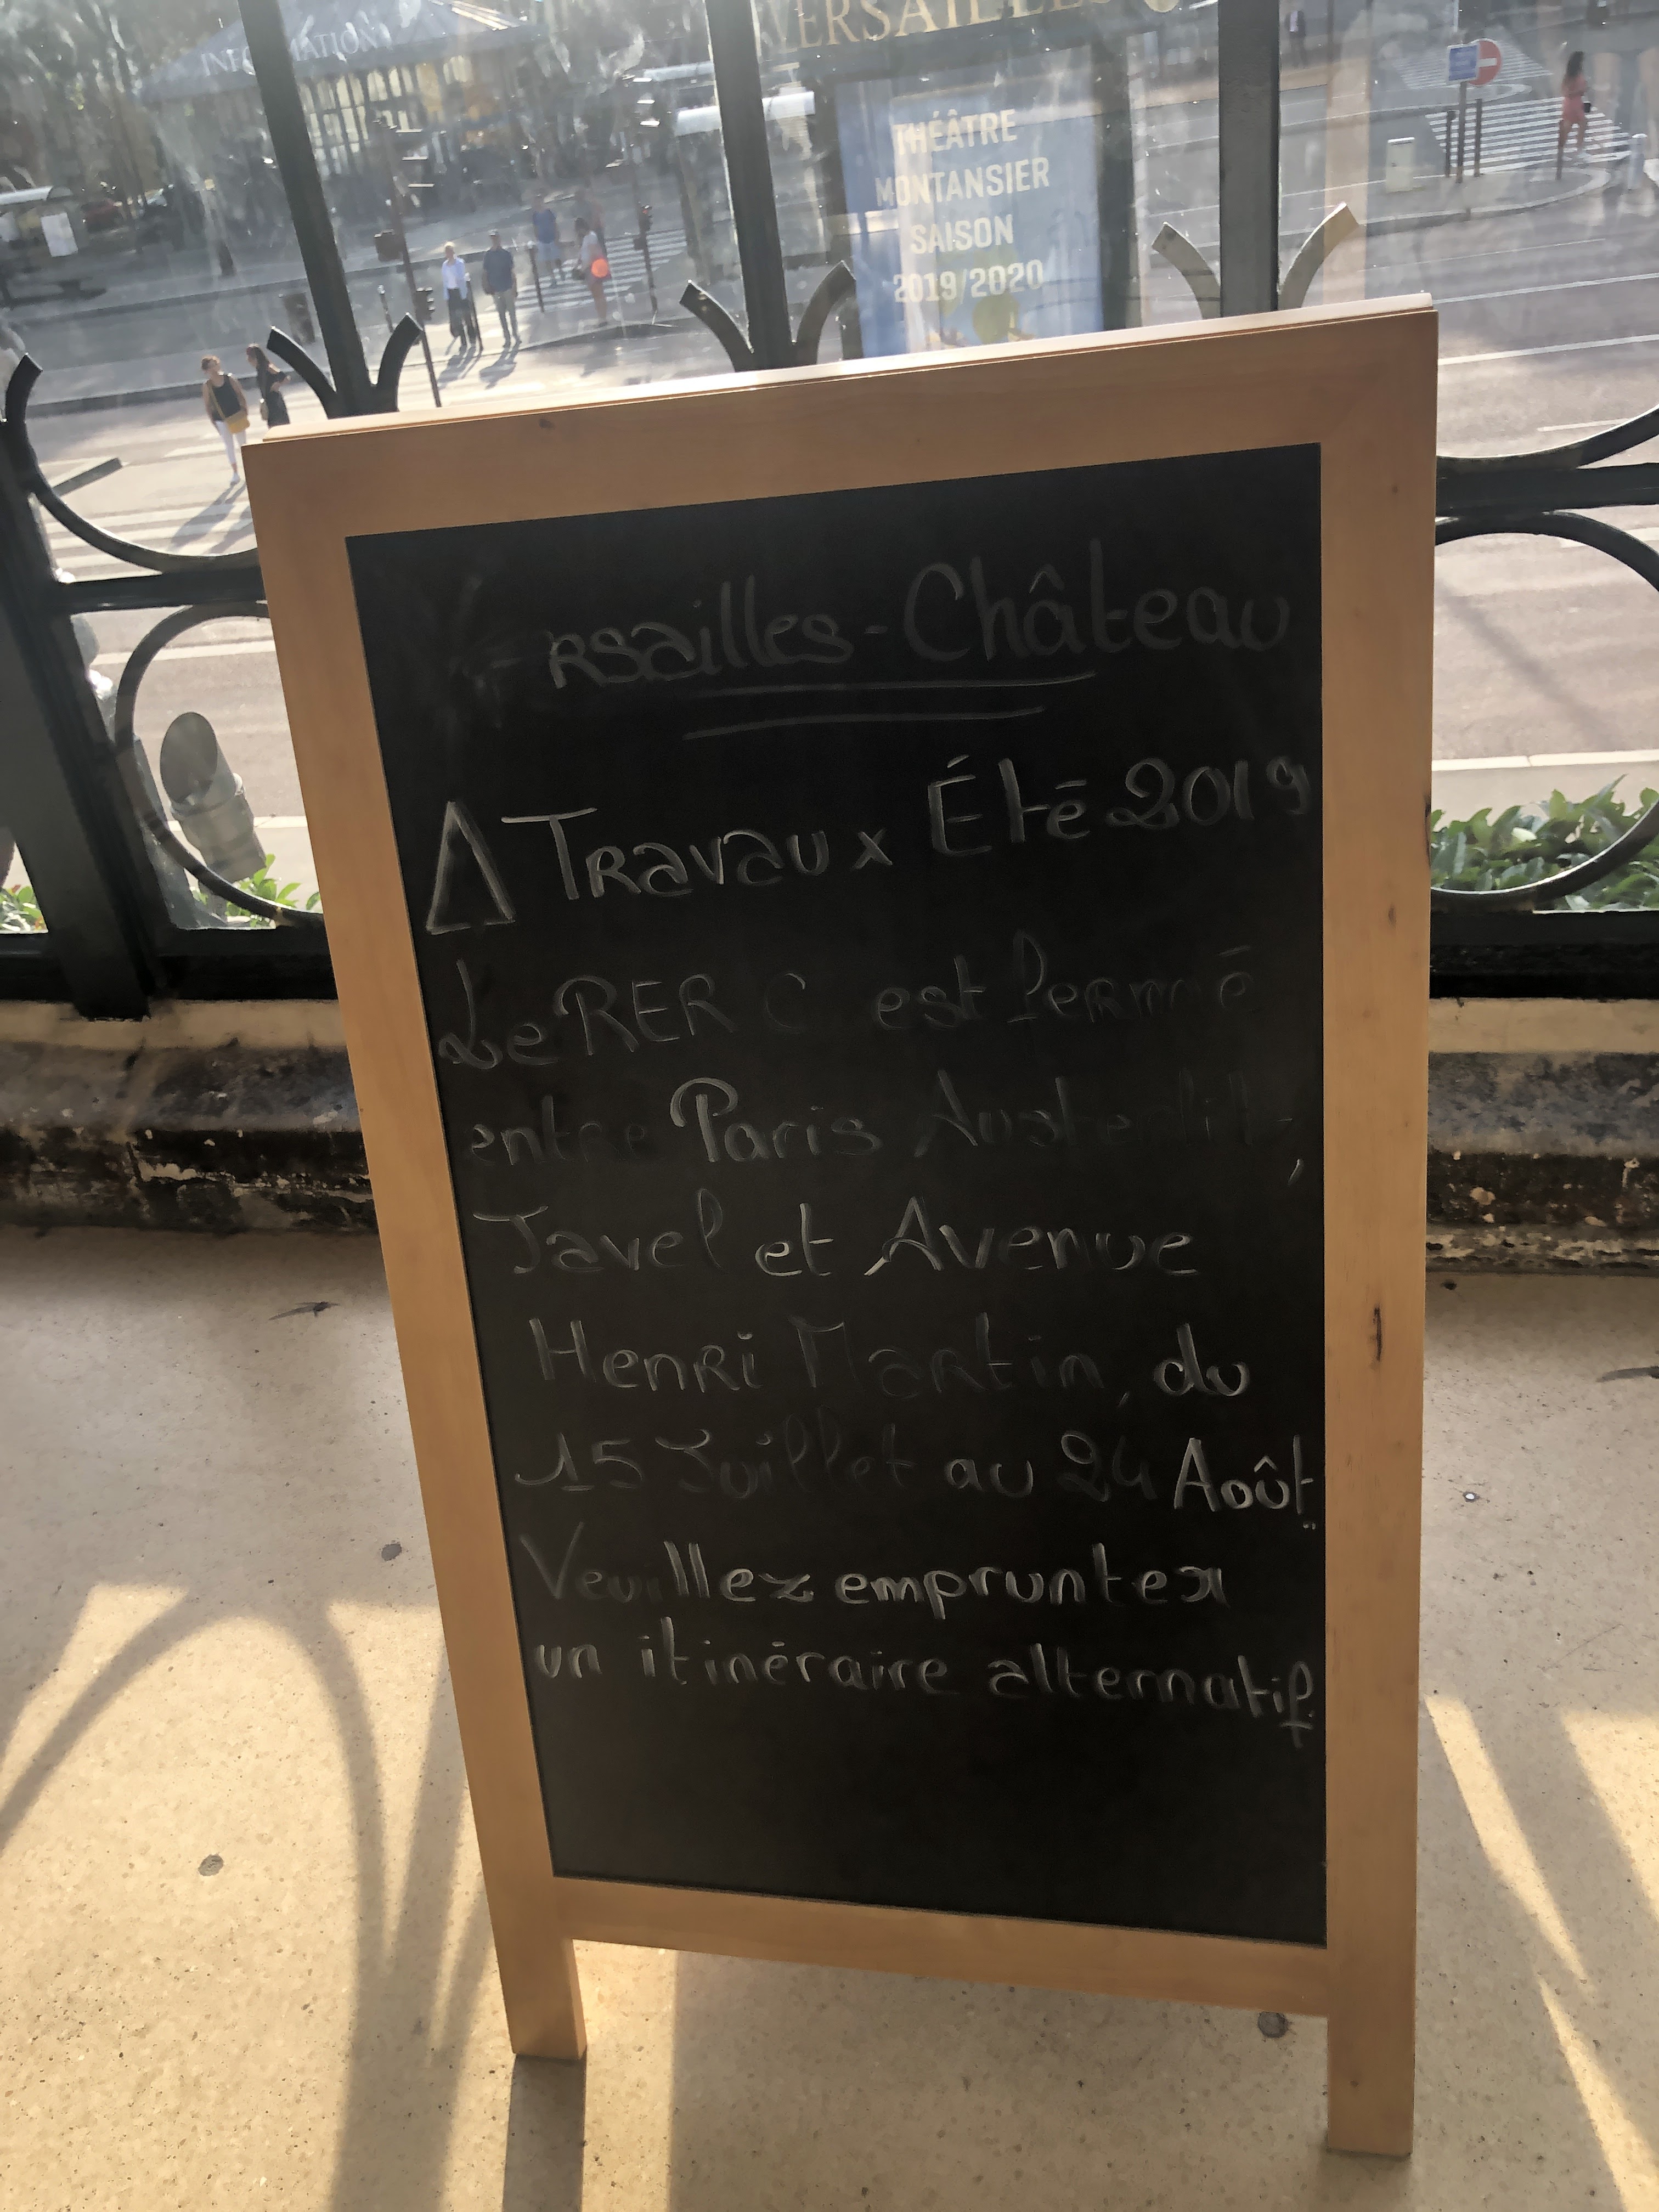 INFORMATION
VERSAILLES
THÉÂTRE
MONTANSIER
SAISON
2019/2020
Versailles-Château
Δ Travaux Été 2019
Le RER C est fermé
entre Paris Austerlitz,
Javel et Avenue
Henri Martin, du
15 Juillet au 24 Août
Veuillez emprunter
un itinéraire alternatif.